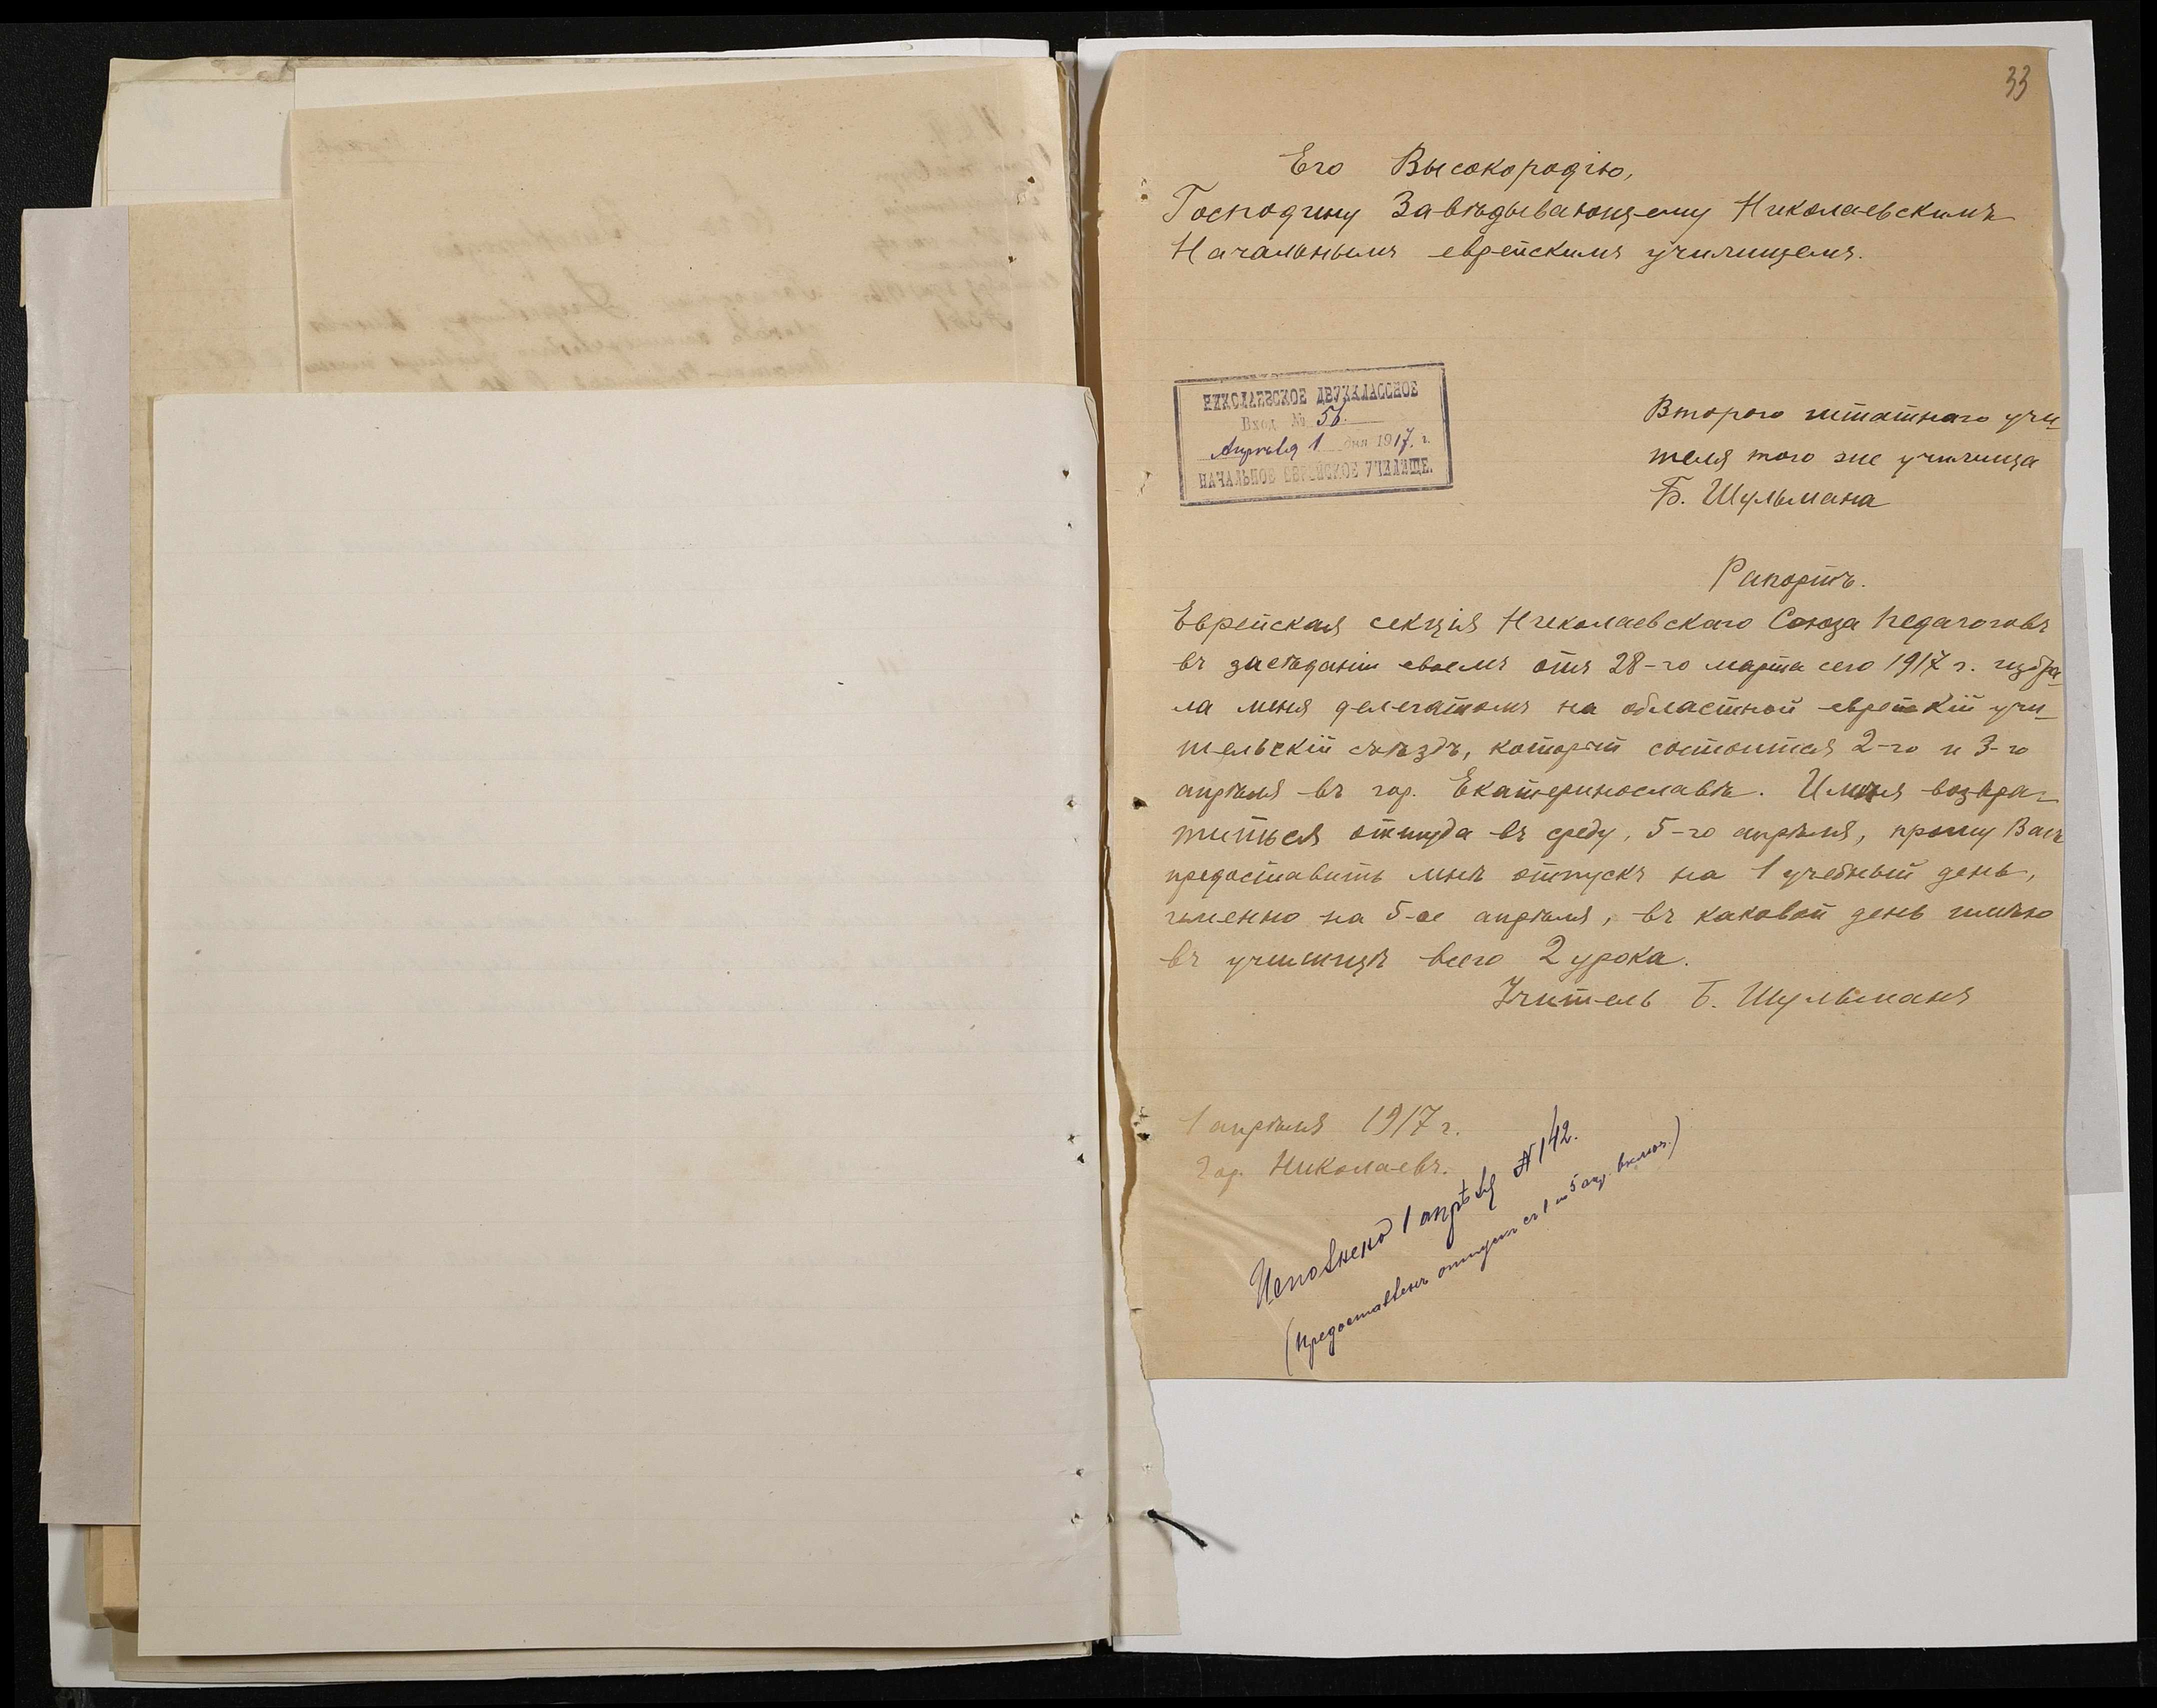 33
Его Высокородію,
Господину Завѣдывающему Николаевскимъ
Начальнымъ еврейскимъ училищемъ.
НИКОЛАЕВСКОЕ ДВУХКЛАССНОЕ
Вход № 56.
Апрѣля 1 дня 1917. г.
НАЧАЛЬНОЕ ЕВРЕЙСКОЕ УЧИЛИЩЕ.
Второго штатнаго учи-
теля того же училища
Б. Шульмана
Рапортъ.
Еврейская секція Николаевскаго Союза Педагоговъ
въ засѣданіи своемъ отъ 28-го марта сего 1917 г. избра-
ла меня делегатомъ на областной еврейскій учи-
тельскій съѣздъ, который состоится 2-го и 3-го
апрѣля въ гор. Екатеринославѣ. Имѣя возвра-
титься оттуда въ среду, 5-го апрѣля, прошу Васъ
предоставить мнѣ отпускъ на 1 учебный день,
именно на 5-ое апрѣля, въ каковой день имѣю
въ училищѣ всего 2 урока.
Учитель Б. Шульманъ
1 апрѣля 1917 г.
гор. Николаевъ.
Исполнено 1 апрѣля № 142.
(предоставленъ отпускъ съ 1 по 5 апр. включ.)